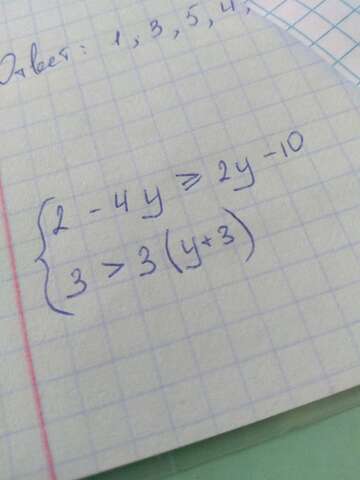 Ответ: 1, 3, 5, 4,
2 - 4y ≥ 2y - 10
3 > 3(y+3)